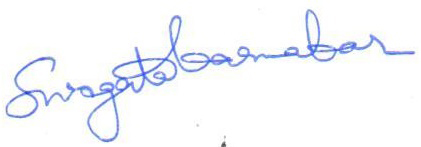 Swagata Karmakar